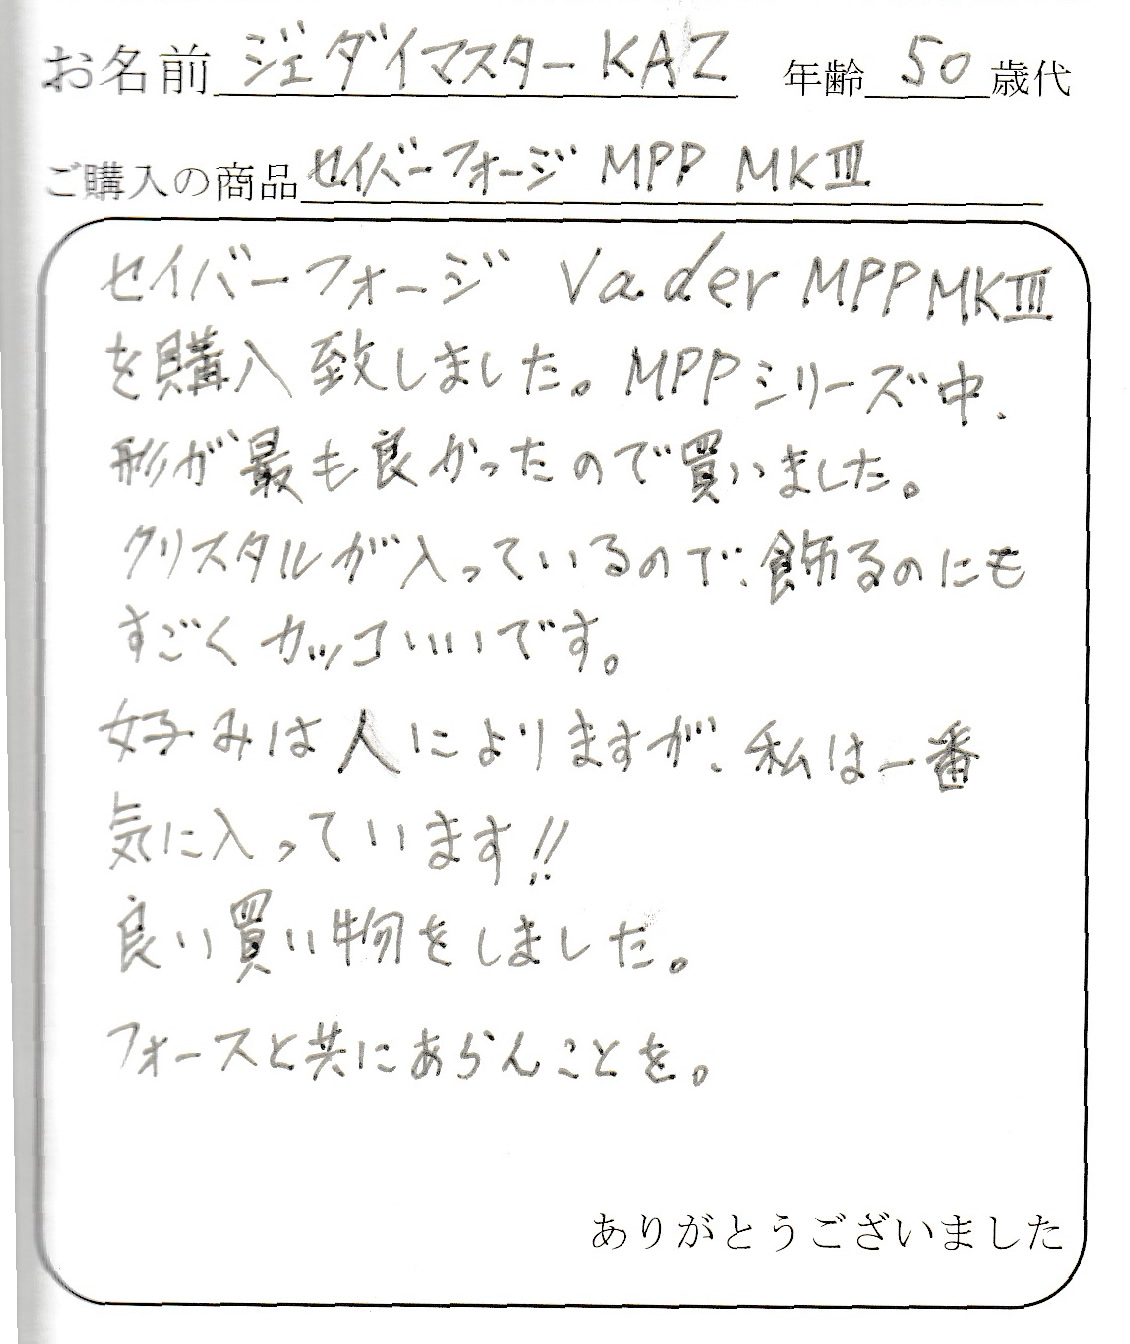 お名前 ジェダイマスター KAZ 年齢 50 歳代
ご購入の商品 セイバーフォージ MPP MKⅢ
セイバーフォージ Vader MPP MKⅢ
を購入致しました。MPPシリーズ中、
形が最も良かったので買いました。
クリスタルが入っているので、飾るのにも
すごくカッコいいです。
好みは人によりますが、私は一番
気に入っています!!
良い買い物をしました。
フォースと共にあらんことを。
ありがとうございました